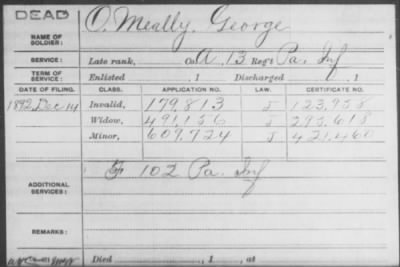 DEAD
O'Meally, George
NAME OF SOLDIER:
SERVICE: Late rank, Co. A, 13 Reg't Pa. Inf
TERM OF SERVICE: Enlisted , 1 Discharged , 1
DATE OF FILING. CLASS. APPLICATION NO. LAW. CERTIFICATE NO.
1892, Dec 14 Invalid, 179,813 J 123,958
Widow, 491,156 J 295,618
Minor, 609,724 J 421,460
ADDITIONAL SERVICES: 102 Pa. Inf
REMARKS:
Died , 1 , at